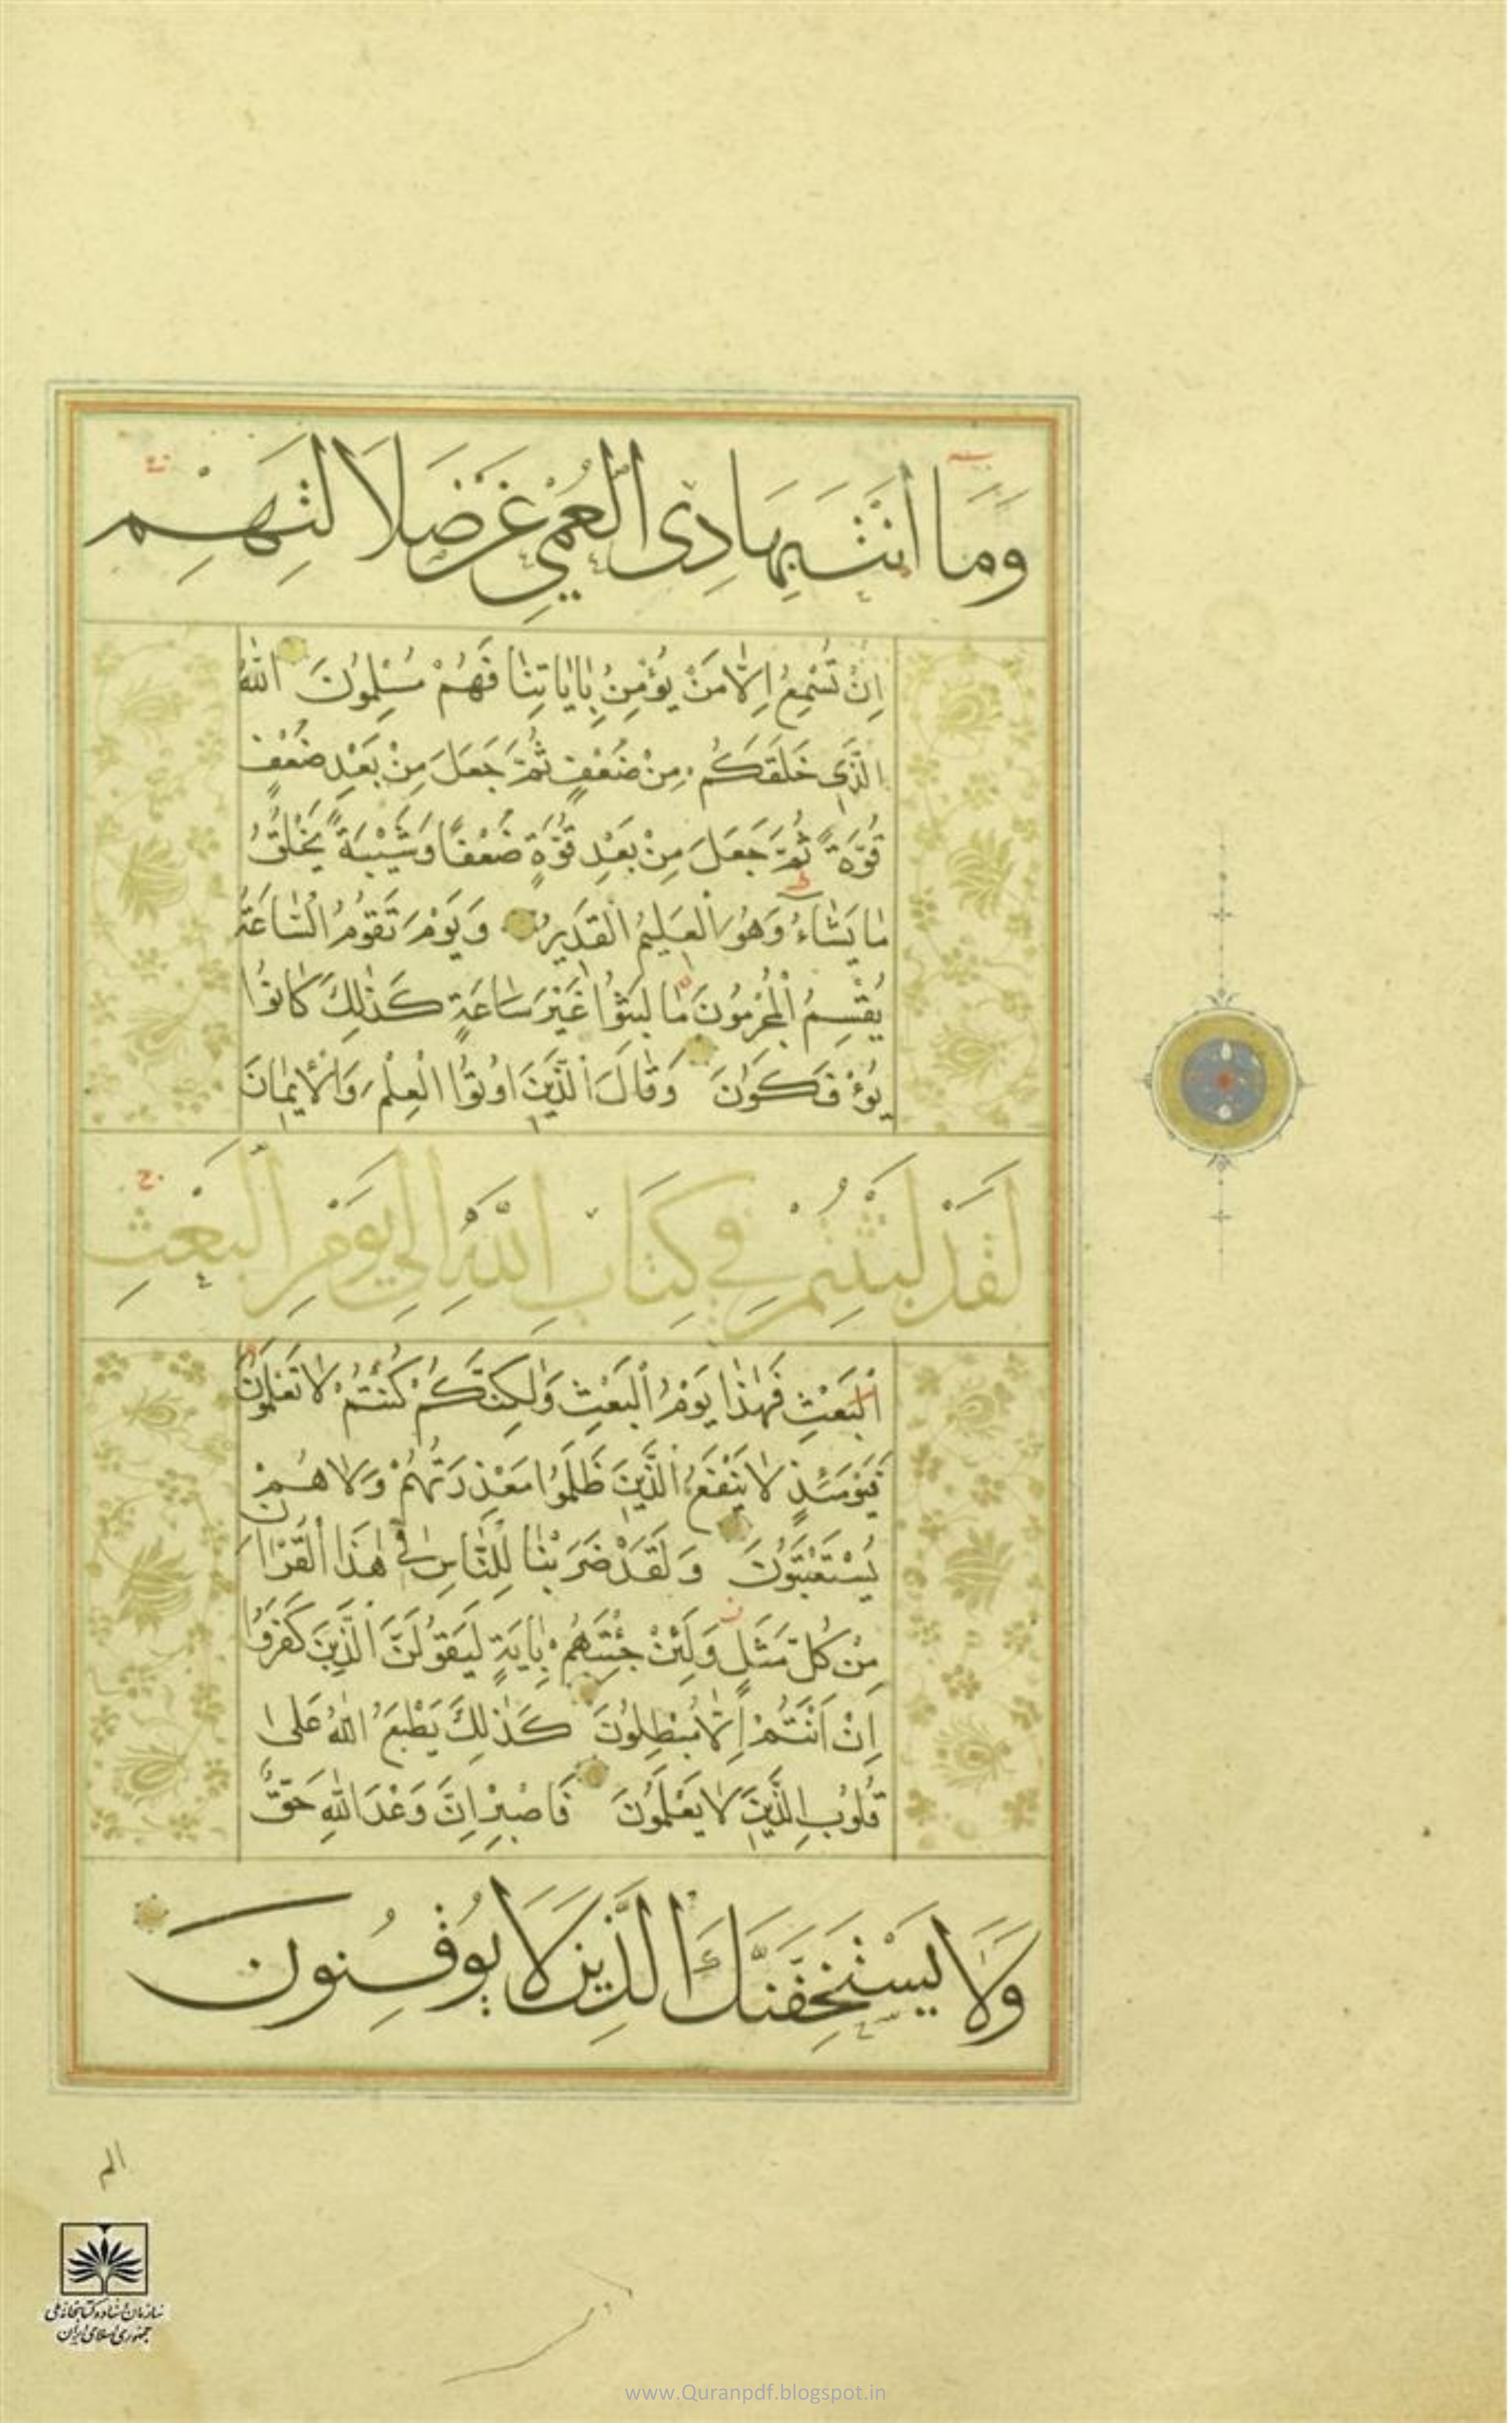 وَمَا اَنْتَ بِهَادِى الْعُمْيِ عَنْ ضَلَالَتِهِمْ
اِنْ تُسْمِعُ اِلَّا مَنْ يُؤْمِنُ بِاٰيَاتِنَا فَهُمْ مُسْلِمُونَ اللّٰهُ
الَّذِى خَلَقَكُمْ مِنْ ضُعْفٍ ثُمَّ جَعَلَ مِنْ بَعْدِ ضُعْفٍ
قُوَّةً ثُمَّ جَعَلَ مِنْ بَعْدِ قُوَّةٍ ضُعْفًا وَشَيْبَةً يَخْلُقُ
مَا يَشَاءُ وَهُوَ الْعَلِيمُ الْقَدِيرُ وَيَوْمَ تَقُومُ السَّاعَةُ
يُقْسِمُ الْمُجْرِمُونَ مَا لَبِثُوا غَيْرَ سَاعَةٍ كَذٰلِكَ كَانُوا
يُؤْفَكُونَ وَقَالَ الَّذِينَ اُوتُوا الْعِلْمَ وَالْاِيمَانَ
لَقَدْ لَبِثْتُمْ فِي كِتَابِ اللّٰهِ اِلٰى يَوْمِ الْبَعْثِ
الْبَعْثِ فَهٰذَا يَوْمُ الْبَعْثِ وَلٰكِنَّكُمْ كُنْتُمْ لَا تَعْلَمُونَ
فَيَوْمَئِذٍ لَا يَنْفَعُ الَّذِينَ ظَلَمُوا مَعْذِرَتُهُمْ وَلَا هُمْ
يُسْتَعْتَبُونَ وَلَقَدْ ضَرَبْنَا لِلنَّاسِ فِي هٰذَا الْقُرْاٰنِ
مِنْ كُلِّ مَثَلٍ وَلَئِنْ جِئْتَهُمْ بِاٰيَةٍ لَيَقُولَنَّ الَّذِينَ كَفَرُوا
اِنْ اَنْتُمْ اِلَّا مُبْطِلُونَ كَذٰلِكَ يَطْبَعُ اللّٰهُ عَلٰى
قُلُوبِ الَّذِينَ لَا يَعْلَمُونَ فَاصْبِرْ اِنَّ وَعْدَ اللّٰهِ حَقٌّ
وَلَا يَسْتَخِفَّنَّكَ الَّذِينَ لَا يُوقِنُونَ
الم
سازمان اسناد و کتابخانه ملی
جمهوری اسلامی ایران
www.Quranpdf.blogspot.in